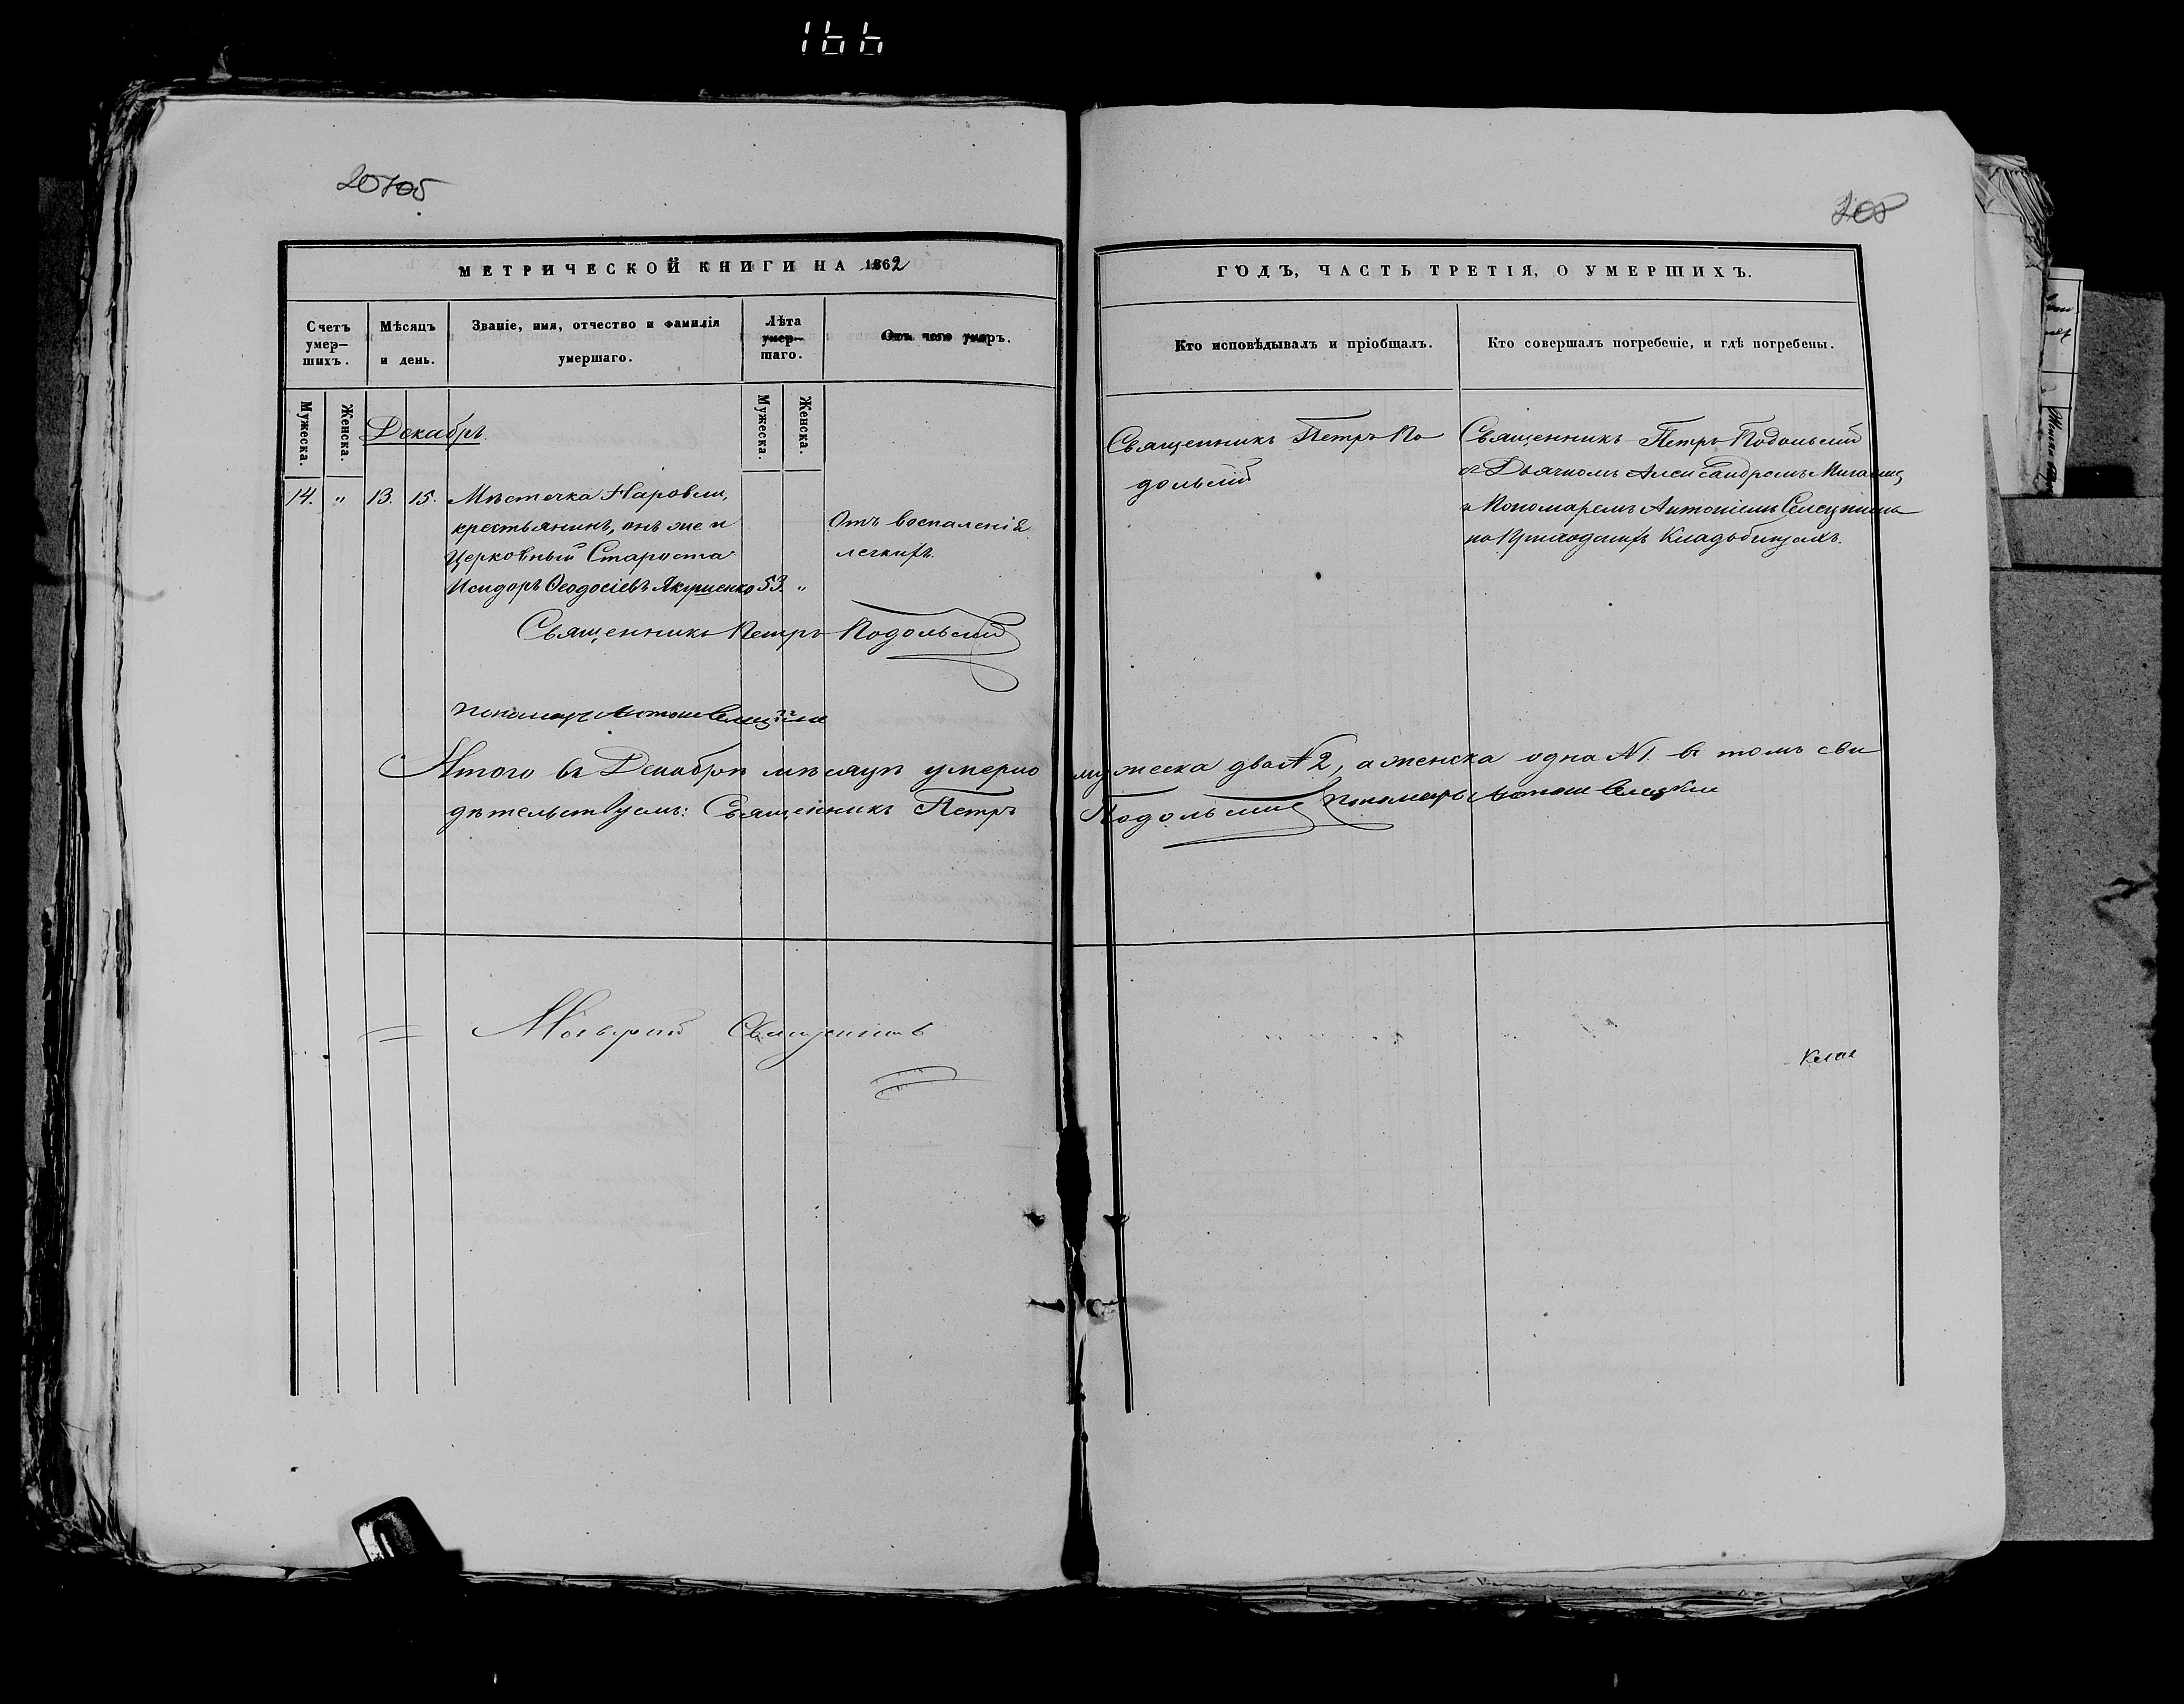 166
20705
208
МЕТРИЧЕСКОЙ КНИГИ НА 1862
ГОДЪ, ЧАСТЬ ТРЕТІЯ, О УМЕРШИХЪ.
Счетъ умер-шихъ.
Мѣсяцъ и день.
Званіе, имя, отчество и фамилія умершаго.
Лѣта умер-шаго.
Отъ чего умеръ.
Кто исповѣдывалъ и пріобщалъ.
Кто совершалъ погребеніе, и гдѣ погребены.
Мужеска.
Женска.
Мужеска.
Женска.
Декабрь.
14. " 13. 15. Мѣстечка Наровли,
крестьянинъ, онъ же и
Церковный Староста
Исидоръ Ѳеодосіевъ Якушенко 53. "
Отъ воспаленія
легкихъ.
Священникъ Петръ По
дольскій
Священникъ Петръ Подольскій
съ Дьячкомъ Александромъ
и Пономаремъ Антоніемъ
на Приходскихъ Кладбищахъ.
Священникъ Петръ Подольскій
Пономарь Антоній
Итого въ Декабрѣ мѣсяцѣ умерло мужеска два № 2, а женска одна № 1. въ томъ сви
дѣтельствуемъ: Священникъ Петръ Подольскій Пономарь Антоній
Священникъ